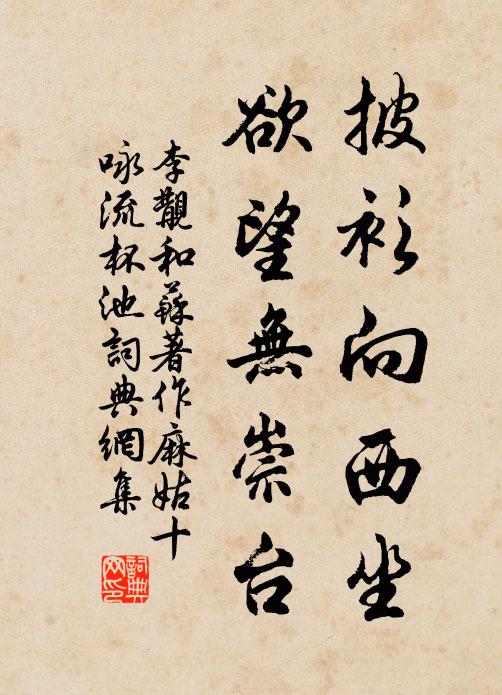 披衫向西坐
欲望無崇台
李覯和蘇著作麻姑十
咏流杯池詞典網集
詞典
网印